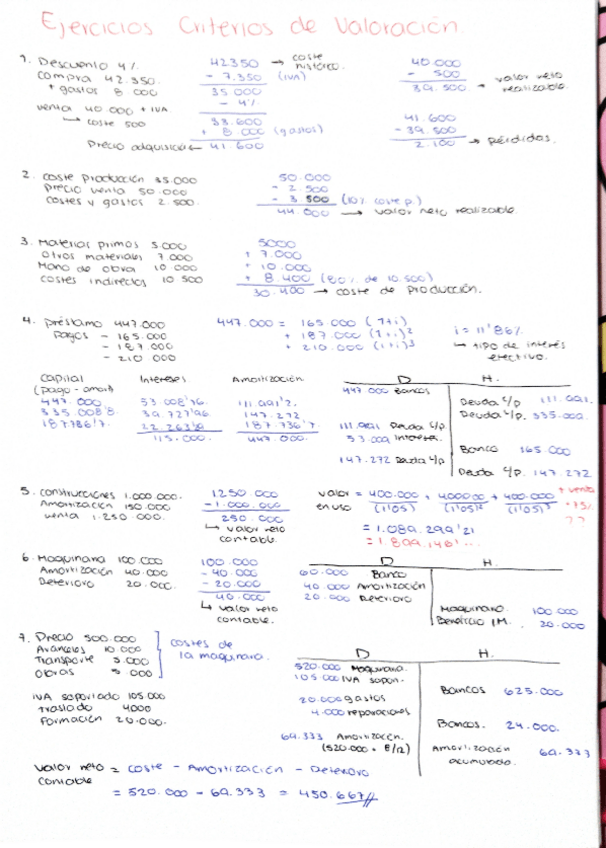 Ejercicios Criterios de Valoración.
1. Descuento 4%
compra 42.350.
+ gastos 8 000
venta 40.000 + IVA
↳ coste 500
42350 → coste histórico.
- 7.350 (IVA)
35 000
- 4%
33.600
+ 8 000 (gastos)
Precio adquisición ← 41.600
40.000
- 500
39.500 → valor neto realizable.
41.600
- 39.500
2.100 → pérdidas.
2. coste producción 35.000
Precio venta 50.000
costes y gastos 2.500
50.000
- 2.500
- 3.500 (10% coste p.)
44.000 → valor neto realizable
3. Materias primas 5.000
Otros materiales 7.000
Mano de obra 10 000
costes indirectos 10.500
5000
+ 7.000
+ 10.000
+ 8.400 (80% de 10.500)
30.400 → coste de producción.
4. préstamo 447.000
Pagos - 165.000
- 187.000
- 210 000
447.000 = 165.000 (1+i)
+ 187.000 (1+i)²
+ 210.000 (1+i)³
i = 11'86%
↳ tipo de interés efectivo.
Capital Intereses Amortización
(pago - amort)
447.000 53 008'76 111.991'2
335.008'8 39.727'96 147.272
187.736'7 22.263'9 187.736'7
115.000. 447.000.
D H.
447 000 Bancos
Deuda l/p 111.991
Deuda l/p. 335.000
111.991 Deuda c/p
53.009 Intereses
Banco 165 000
147.272 Deuda l/p
Deuda c/p. 147.272
5. construcciones 1.000 000.
Amortización 150.000
venta 1.250 000.
1250.000
- 1.000.000
250 000
↳ valor neto contable.
valor en uso = 400.000/(1'05) + 400000/(1'05)² + 400.000/(1'05)³ + venta
= 1.089.299'21
6. Maquinaria 100.000
Amortización 40.000
Deterioro 20.000.
100.000
- 40.000
- 20.000
40.000
↳ valor neto contable.
D H.
60.000 Banco
40 000 Amortización
20.000 Deterioro
Maquinaria 100.000
Beneficio IM. 20.000
7. Precio 500.000
Aranceles 10 000
Transporte 5.000
Obras 5 000
costes de la maquinaria.
IVA soportado 105.000
traslado 4000
Formación 20.000.
D H.
520.000 Maquinaria
105.000 IVA sopor.
Bancos 625.000
20.000 gastos
4.000 reparaciones
Bancos. 24.000
69.333 Amortización.
(520.000 · 8/12)
Amortización acumulada. 69.333
Valor neto contable = coste - Amortización - Deterioro
= 520.000 - 69.333 = 450.667//